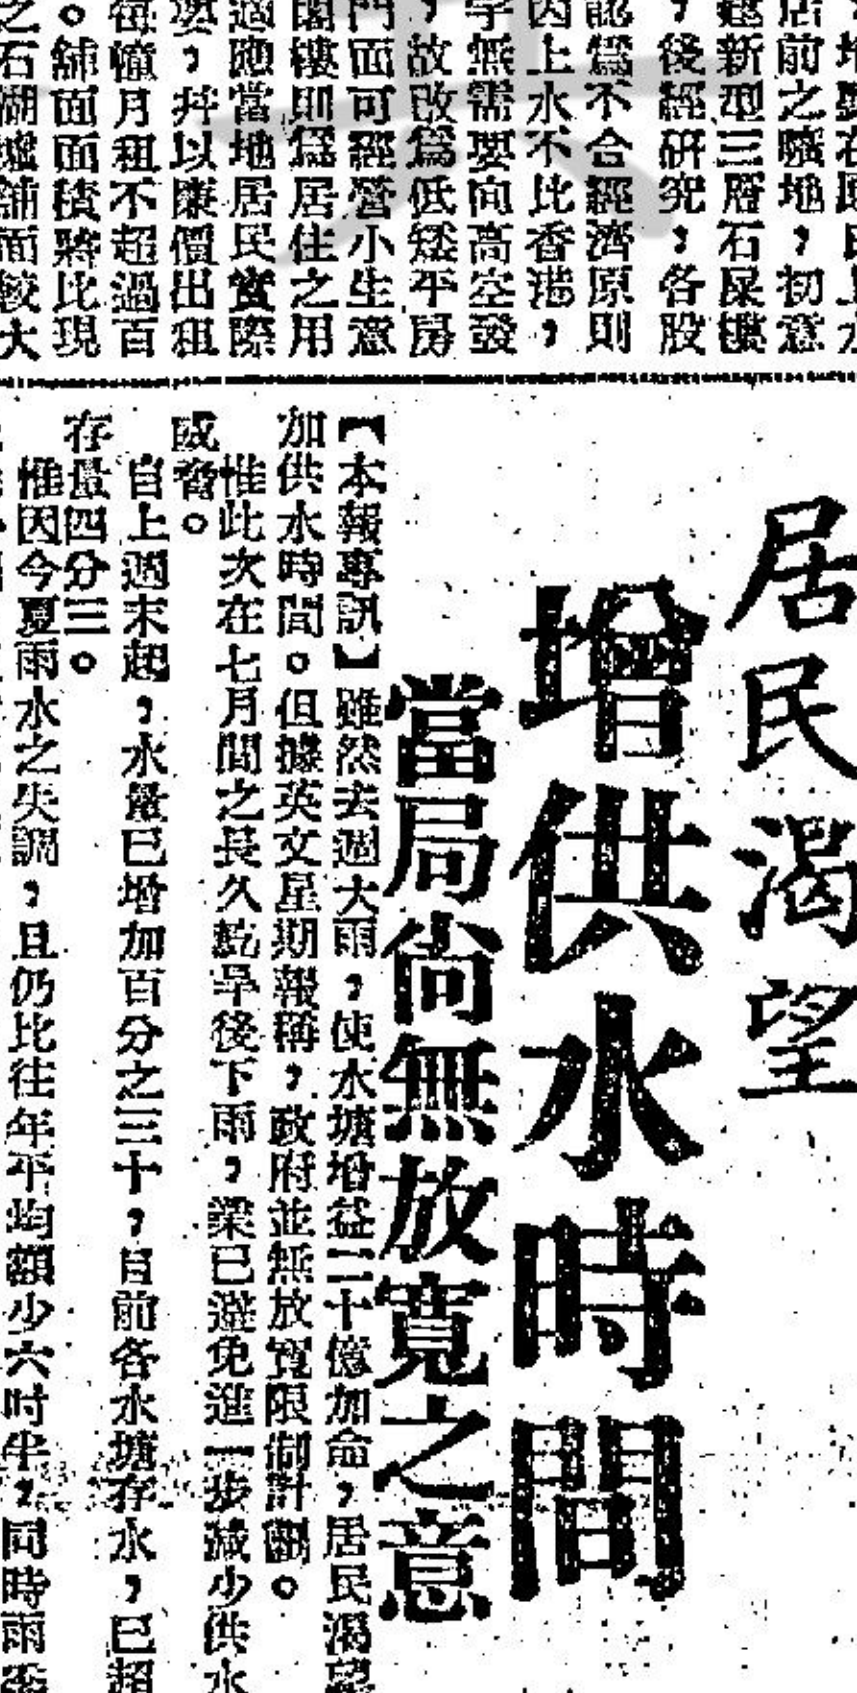 店前之曠地，初意
新型三層石屎樓
，後經研究，各股
認為不合經濟原則
因上水不比香港，
字無需要向高空發
，故改為低矮平房
門面可經營小生意
閣樓則為居住之用
適應當地居民實際
要，幷以廉價出租
每幢月租不超過百
。舖面面積將比現
之石湖墟舖面較大
居民渴望
增供水時間
當局尚無放寬之意
【本報專訊】雖然去週大雨，使水塘增益二十億加侖，居民渴望
加供水時間。但據英文星期報稱，政府並無放寬限制計劃。
惟此次在七月間之長久乾旱後下雨，業已避免進一步減少供水
或脅。
自上週末起，水量已增加百分之三十，目前各水塘存水，已超
存量四分三。
惟因今夏雨水之失調，且仍比往年平均額少六吋半，同時雨季